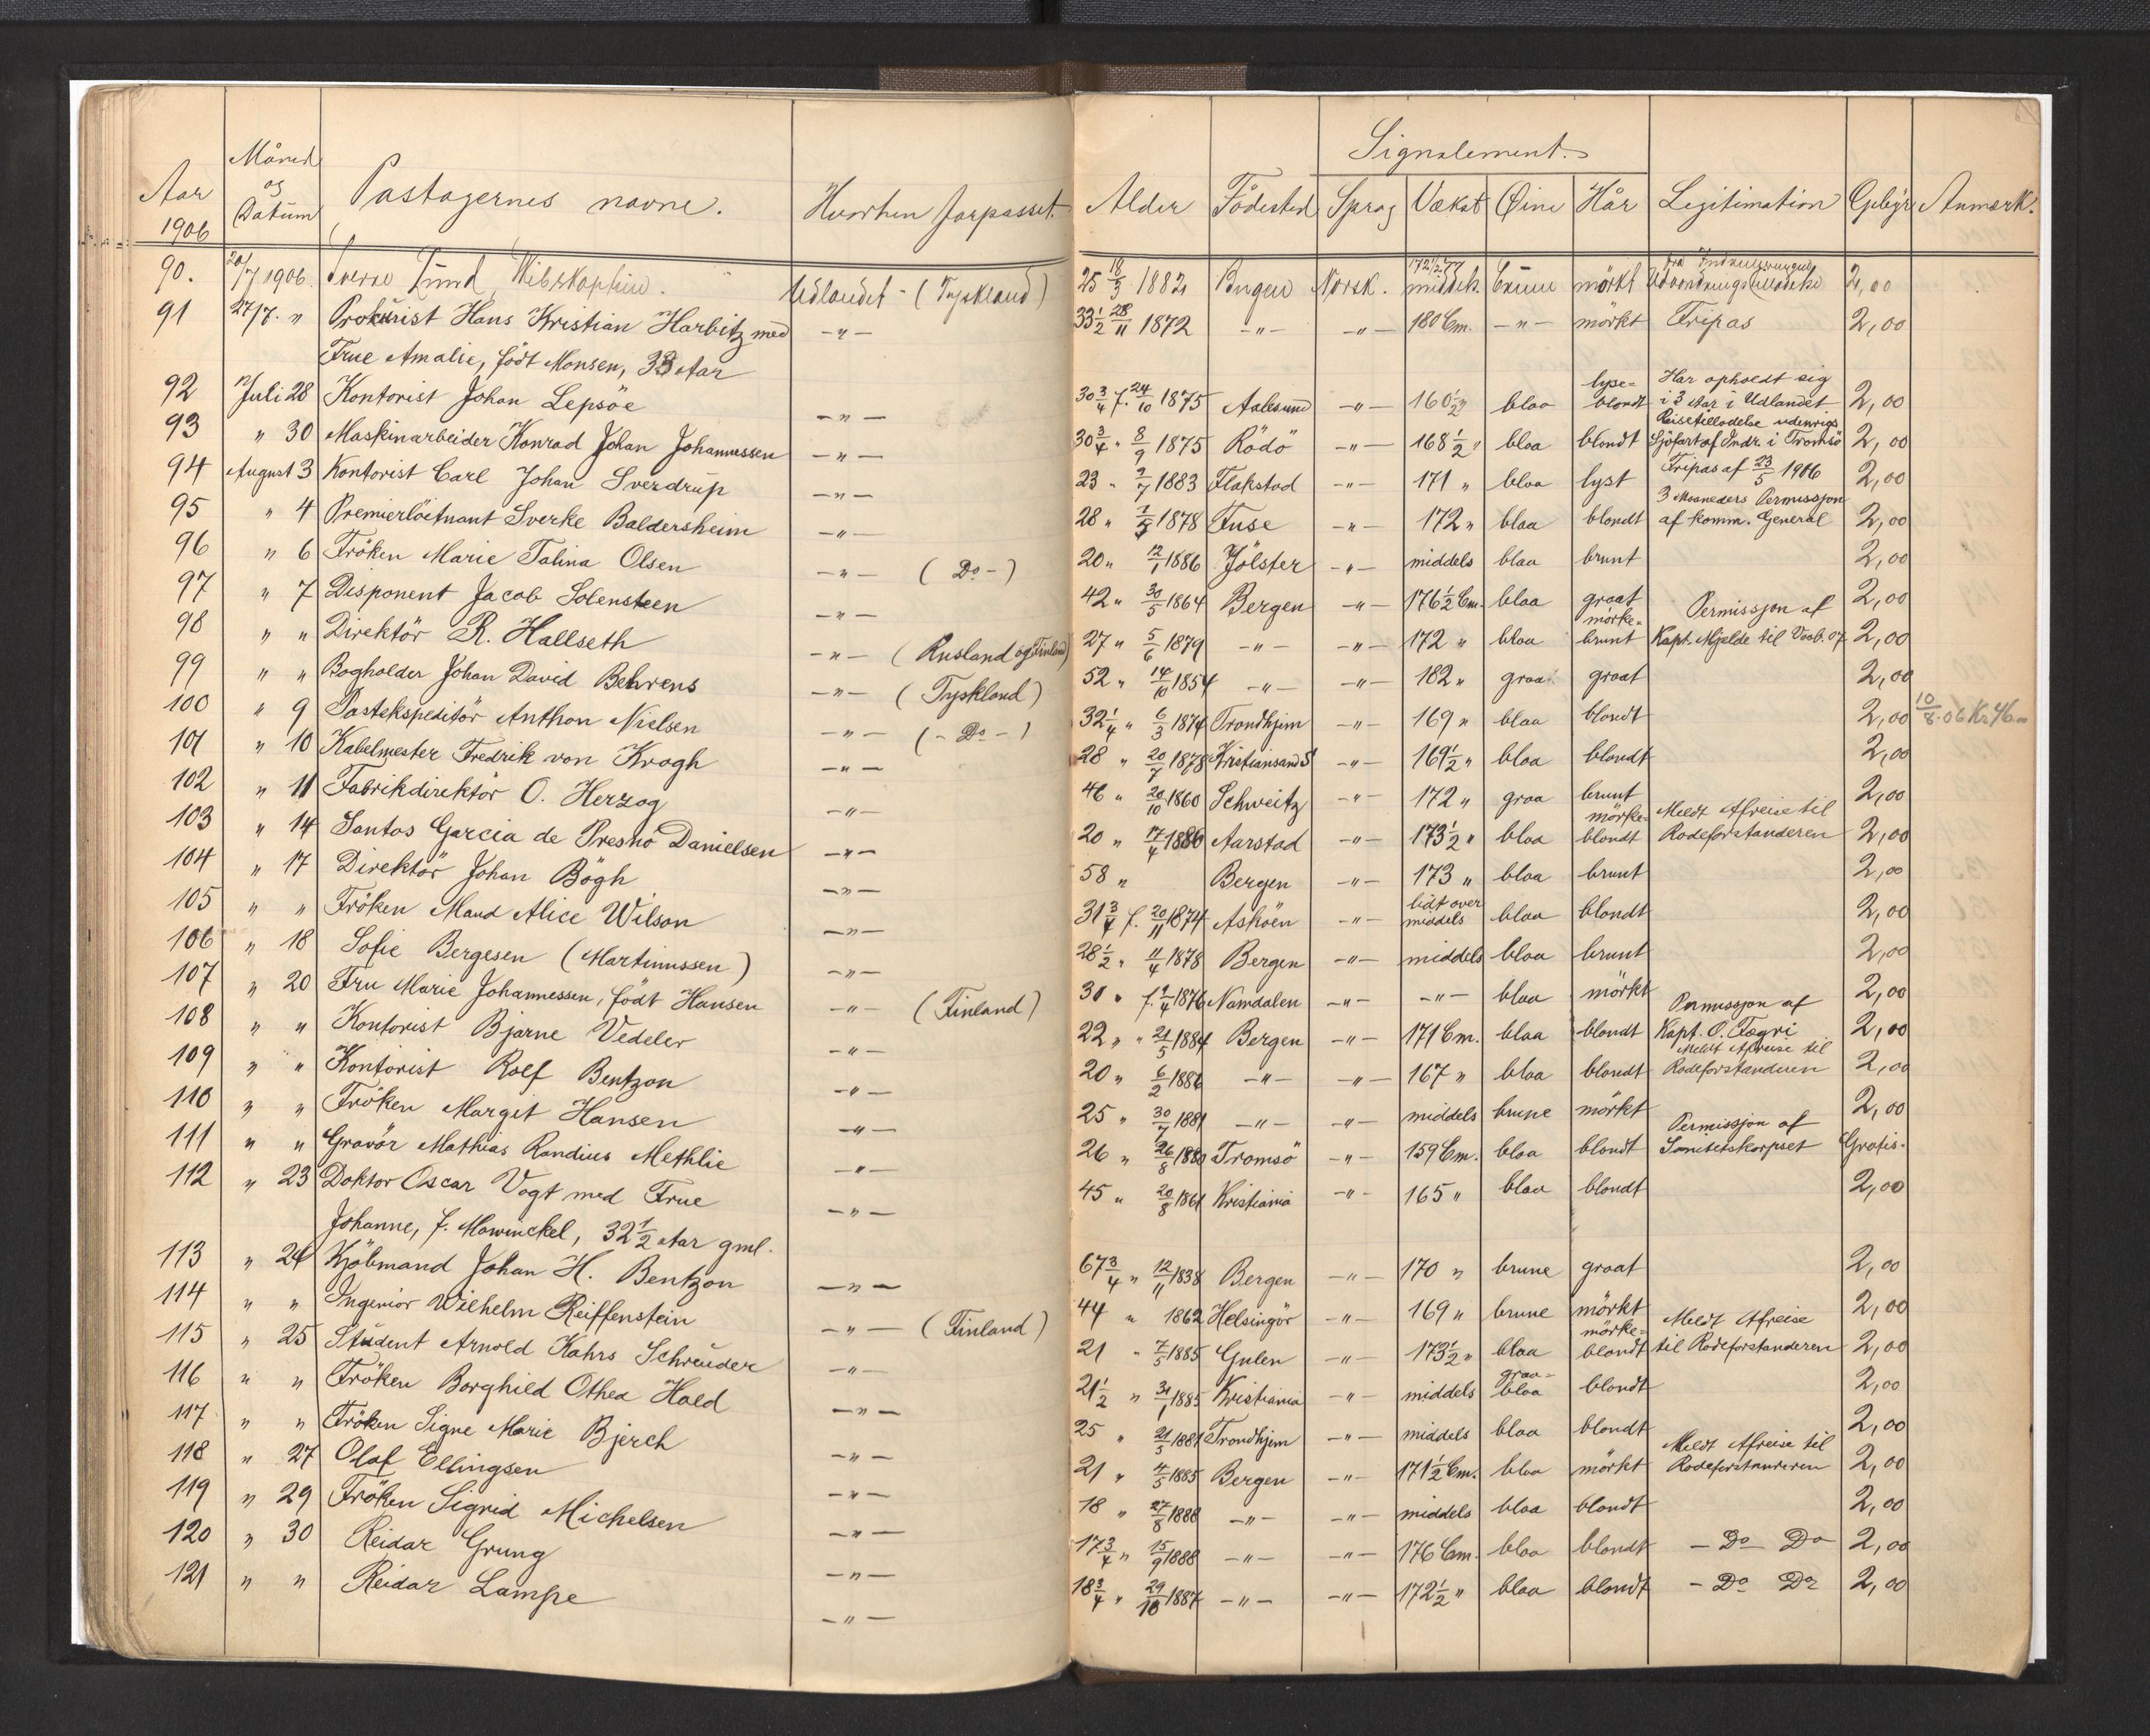 Signalement.
Aar 1906 Måned og Datum Passagernes navne. Hvorhen Forpasset. Alder Födested Sprog Vækst Øine Hår Legitimation Gebyr Anmærk.
172 1/2 fra
90. 20/7 1906. Sverre Lund, Udlandet - (Tyskland) 25 18/3 1882 Bergen Norsk. middels. brune mörkt 2,00
91 27/7. " Prokurist Hans Kristian Harbitz med —"— 33 1/2 28/11 1872 —"— —"— 180 Cm. —"— mörkt Fripas 2,00
Frue Amalie, födt Monsen, 33 Aar
lyse= Har opholdt sig
92 Juli 28 Kontorist Johan Lepsöe —"— 30 3/4 f. 24/10 1875 Aalesund —"— 160 1/2 " blaa blondt i 3 Aar i Udlandet 2,00
Reisetilladelse udenrigs
93 " 30 Maskinarbeider Konrad Johan Johannessen —"— 30 3/4 " 8/9 1875 Rödö —"— 168 1/2 " blaa blondt Sjöfart af Indr. i Tromsö 2,00
94 August 3 Kontorist Carl Johan Sverdrup —"— 23 " 2/7 1883 Flakstad —"— 171 " blaa lyst Fripas af 23/5 1906 2,00
3 Maaneders Permissjon
95 " 4 Premierlöitnant Sverke Baldersheim —"— 28 " 1878 Fuse —"— 172 " blaa blondt af komm. General 2,00
96 " 6 Fröken Marie Talina Olsen —"— ( Do - ) 20 " 12/1 1886 Jölster —"— middels blaa brunt 2,00
97 " 7 Disponent Jacob Solensteen —"— 42 " 30/5 1864 Bergen —"— 176 1/2 Cm. blaa graat 2,00
mörke= Permissjon af
98 " " Direktör R. Hallseth —"— ( Rusland og Finland) 27 " 5/6 1879 —"— —"— 172 " blaa brunt Kapt. Mjelde til 2,00
99 " " Bogholder Johan David Behrens —"— ( Tyskland ) 52 " 14/10 1854 —"— —"— 182 " graa graat 2,00
100 " 9 Postekspeditör Anthon Nielsen —"— ( - Do - ) 32 1/4 " 6/3 1874 Trondhjem —"— 169 " blaa blondt 2,00 10/8.06 Kr.
101 " 10 Kabelmester Fredrik von Krogh —"— 28 " 20/7 1878 Kristiansand S —"— 169 1/2 " blaa blondt 2,00
102 " 11 Fabrikdirektör O. Herzog —"— 46 " 20/10 1860 Schweitz —"— 172 " graa brunt 2,00
mörke= Meldt Afreise til
103 " 14 Santos Garcia de Presno Danielsen —"— 20 " 17/4 1886 Aarstad —"— 173 1/2 " blaa blondt Rodeforstanderen 2,00
104 " 17 Direktör Johan Bögh —"— 58 " Bergen —"— 173 " blaa brunt 2,00
lidt over
105 " " Fröken Maud Alice Wilson —"— 31 3/4 f. 20/11 1874 Asköen —"— middels blaa blondt 2,00
106 " 18 Sofie Bergesen (Martinussen) —"— 28 1/2 " 11/4 1878 Bergen —"— middels blaa brunt 2,00
107 " 20 Fru Marie Johannessen, födt Hansen —"— ( Finland ) 30 " f. 9/4 1876 Namdalen —"— —"— blaa mörkt 2,00
Permissjon af
108 " " Kontorist Bjarne Vedeler —"— 22 " " 21/5 1884 Bergen —"— 171 Cm. blaa blondt Kapt. O. Fægri 2,00
Meldt Afreise til
109 " " Kontorist Rolf Bentzon —"— 20 " 6/2 1886 —"— —"— 167 " blaa blondt Rodeforstanderen 2,00
110 " " Fröken Margit Hansen —"— 25 " 30/7 1881 —"— —"— middels brune mörkt 2,00
Permissjon af
111 " " Gravör Mathias Randius Methlie —"— 26 " 26/8 1880 Tromsö —"— 159 Cm. blaa blondt Sanitetskorpset Gratis.
112 " 23 Doktor Oscar Vogt med Frue —"— 45 " 20/8 1861 Kristiania —"— 165 " blaa blondt 2,00
Johanne, f. Mowinckel, 32 1/2 Aar gml.
113 " 24 Kjöbmand Johan H. Bentzon —"— 67 3/4 " 12/11 1838 Bergen —"— 170 " brune graat 2,00
114 " " Ingeniör Wilhelm Reiffenstein —"— ( Finland ) 44 " 1862 Helsingör —"— 169 " brune mörkt 2,00
mörke= Meldt Afreise
115 " 25 Student Arnold Kahrs Schreuder —"— 21 " 7/5 1885 Gulen —"— 173 1/2 " blaa blondt til Rodeforstanderen 2,00
graa=
116 " " Fröken Borghild Othea Hald —"— 21 1/2 " 31/1 1885 Kristiania —"— middels blaa blondt 2,00
117 " " Fröken Signe Marie Bjerch —"— 25 " 21/5 1881 Trondhjem —"— middels blaa blondt 2,00
Meldt Afreise til
118 " 27 Olaf Ellingsen —"— 21 " 4/5 1885 Bergen —"— 171 1/2 Cm. blaa mörkt Rodeforstanderen 2,00
119 " 29 Fröken Sigrid Michelsen —"— 18 " 27/8 1888 —"— —"— middels blaa blondt 2,00
120 " 30 Reidar Grung —"— 17 3/4 " 15/9 1888 —"— —"— 176 Cm. blaa blondt — Do Do 2,00
121 " " Reidar Lampe —"— 18 3/4 " 29/10 1887 —"— —"— 172 1/2 " blaa blondt — Do Do 2,00